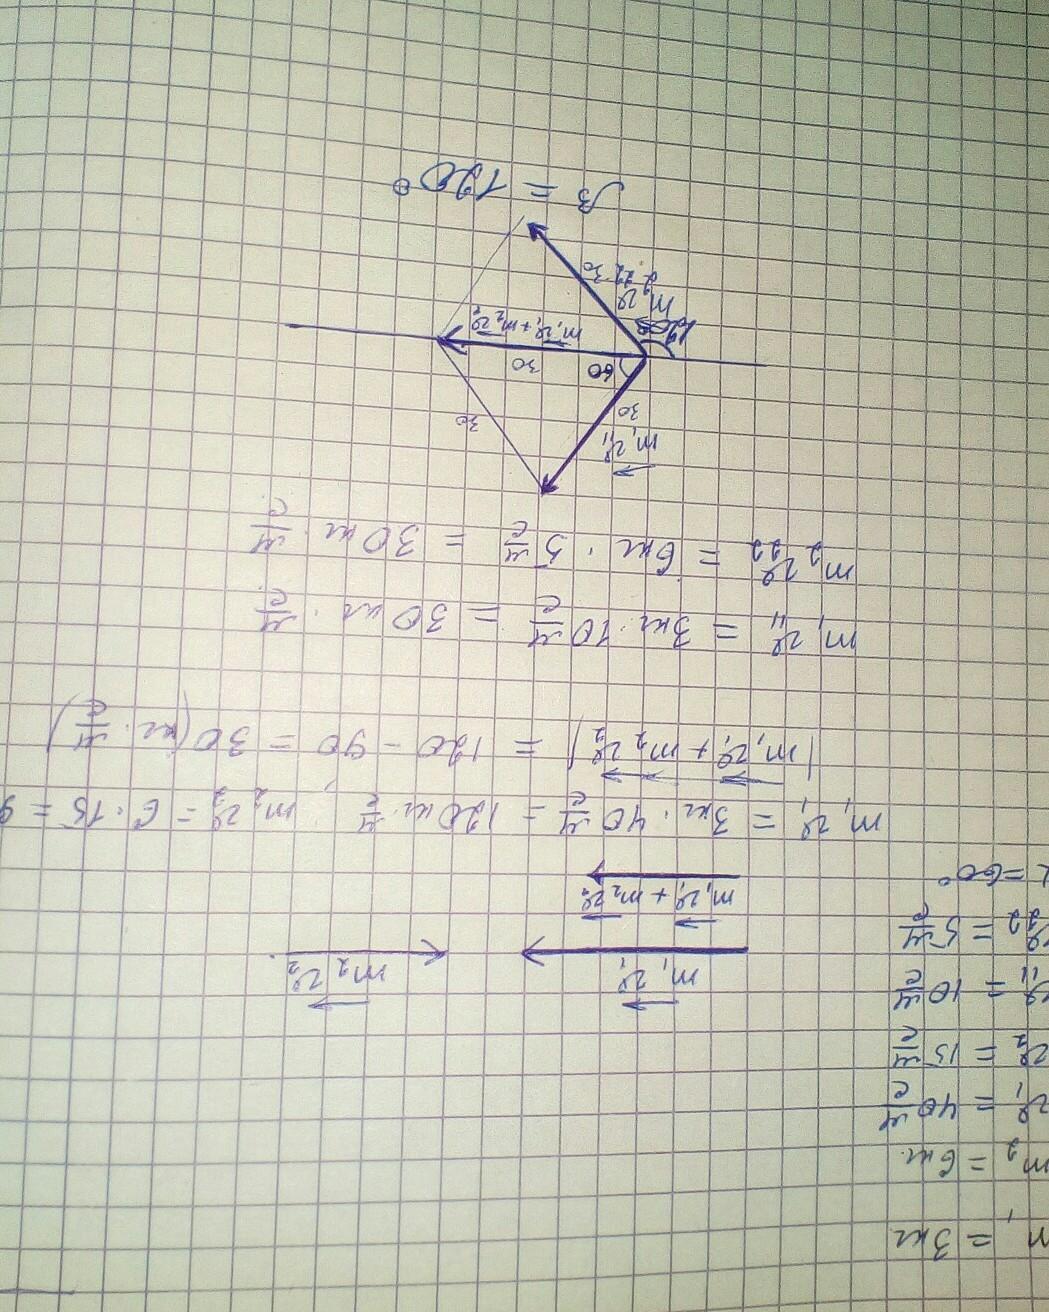 m₁ = 3 кг
m₂ = 6 кг.
v₁ = 40 м/с
v₂ = 15 м/с
v₁₁ = 10 м/с
v₂₂ = 5 м/с
α = 60°
m₁v₁
m₂v₂
m₁v₁ + m₂v₂
m₁v₁ = 3кг · 40 м/с = 120 кг · м/с ; m₂v₂ = 6 · 15 = 9
|m₁v₁ + m₂v₂| = 120 - 90 = 30 (кг · м/с)
m₁v₁₁ = 3кг · 10 м/с = 30 кг · м/с
m₂v₂₂ = 6кг · 5 м/с = 30 кг · м/с
m₁v₁₁
30
30
60
30
m₁v₁ + m₂v₂
m₂v₂₂
30
β = 120°